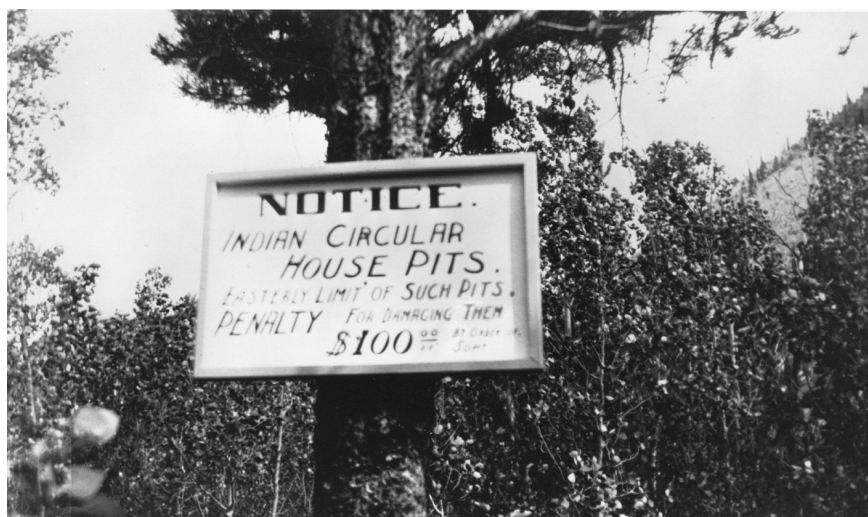 NOTICE.
INDIAN CIRCULAR
HOUSE PITS.
EASTERLY LIMIT OF SUCH PITS.
PENALTY FOR DAMAGING THEM
$100 00 BY ORDER OF
SUPT